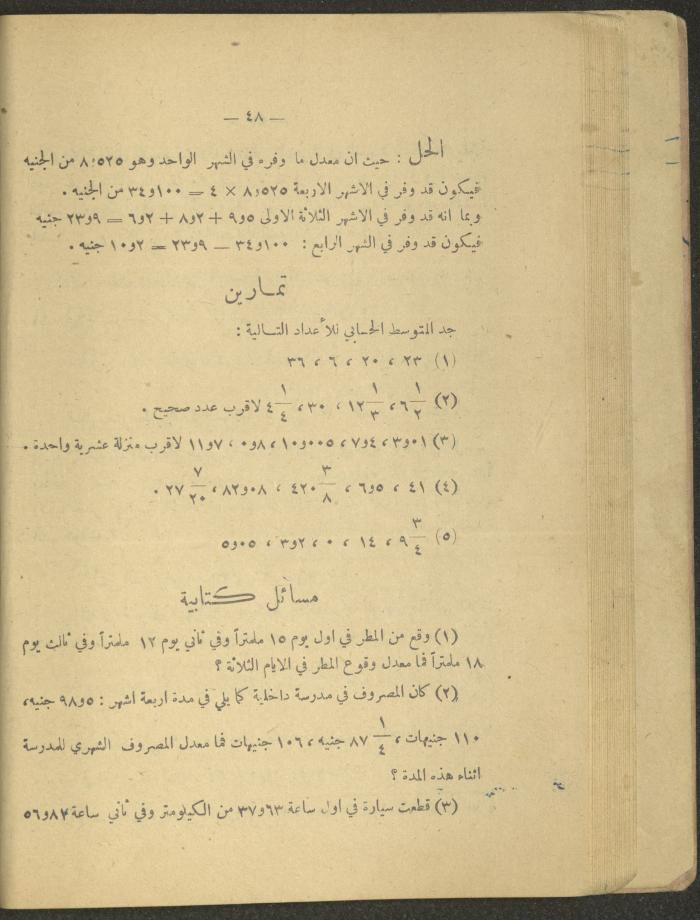 — ٤٨ —
الحل : حيث ان معدل ما وفره في الشهر الواحد وهو ٨٫٥٢٥ من الجنيه
فيكون قد وفر في الاشهر الاربعة ٨٫٥٢٥ × ٤ = ٣٤و١٠٠ من الجنيه .
وبما انه قد وفر في الاشهر الثلاثة الاولى ٩و٥ + ٨و٢ + ٦و٢ = ٢٣و٩ جنيه
فيكون قد وفر في الشهر الرابع : ٣٤و١٠٠ — ٢٣و٩ = ١٠و٢ جنيه .
تمارين
جد المتوسط الحسابي للأعداد التالية :
(١) ٢٣ ، ٢٠ ، ٦ ، ٣٦
(٢) ٦ ١/٢ ، ١٢ ١/٣ ، ٣٠ ، ٤ ١/٤ لاقرب عدد صحيح .
(٣) ٣و٠١ ، ٧و٤ ، ١٠و٠٠٥ ، ٠و٨ ، ١١و٧ لاقرب منزلة عشرية واحدة .
(٤) ٤١ ، ٦و٥ ، ٤٢٠ ٣/٨ ، ٨٢و٠٨ ، ٢٧ ٧/٢٠ .
(٥) ٩ ٣/٤ ، ١٤ ، ٠ ، ٣و٢ ، ٥و٠٥
مسائل كتابية
(١) وقع من المطر في اول يوم ١٥ ملمتراً وفي ثاني يوم ١٢ ملمتراً وفي ثالث يوم
١٨ ملمتراً فما معدل وقوع المطر في الايام الثلاثة ؟
(٢) كان المصروف في مدرسة داخلية كما يلي في مدة اربعة اشهر : ٩٨و٥ جنيه،
١١٠ جنيهات ، ٨٧ ١/٤ جنيه ، ١٠٦ جنيهات فما معدل المصروف الشهري للمدرسة
اثناء هذه المدة ؟
(٣) قطعت سيارة في اول ساعة ٣٧و٦٣ من الكيلومتر وفي ثاني ساعة ٥٦و٨٢